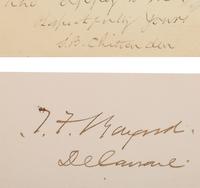 the
Respectfully Yours
S.B. Chittenden
T. F. Bayard.
Delaware.